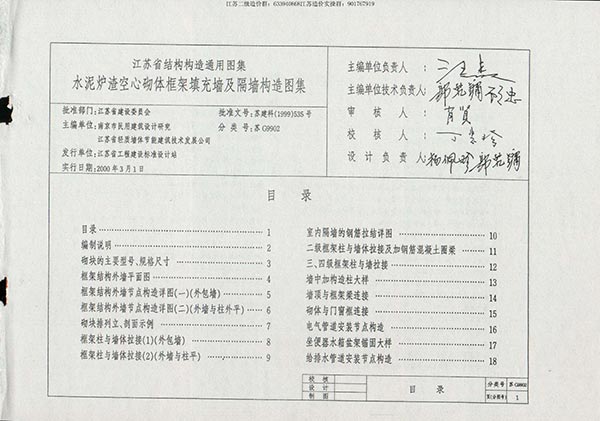 江苏二级造价群：633940868江苏造价实操群：901767919
江苏省结构构造通用图集
水泥炉渣空心砌体框架填充墙及隔墙构造图集
批准部门：江苏省建设委员会
批准文号：苏建科(1999)535号
主编单位：南京市民用建筑设计研究
分 类 号：苏G9902
江苏省轻质墙体节能建筑技术发展公司
发行单位：江苏省工程建设标准设计站
实行日期：2000年3月1日
主编单位负责人：
主编单位技术负责人：
审 核 人：
校 核 人：
设计负责人：
目 录
目录 1
编制说明 2
砌块的主要型号、规格尺寸 3
框架结构外墙平面图 4
框架结构外墙节点构造详图(一)(外包墙) 5
框架结构外墙节点构造详图(二)(外墙与柱外平) 6
砌块排列立、剖面示例 7
框架柱与墙体拉接(1)(外包墙) 8
框架柱与墙体拉接(2)(外墙与柱平) 9
室内隔墙的钢筋拉结详图 10
二级框架柱与墙体拉接及加钢筋混凝土圈梁 11
三、四级框架柱与墙拉接 12
墙中加构造柱大样 13
墙顶与框架梁连接 14
砌体与门窗框连接 15
电气管道安装节点构造 16
坐便器水箱盆架锚固大样 17
给排水管道安装节点构造 18
校 核
设 计
制 图
目 录
分类号 苏G9902
页(分图号) 1